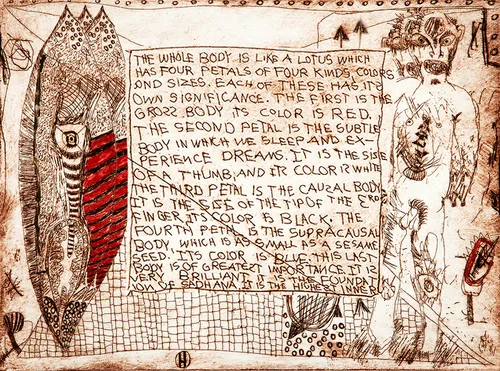 THE WHOLE BODY IS LIKE A LOTUS WHICH
HAS FOUR PETALS OF FOUR KINDS, COLORS
AND SIZES. EACH OF THESE HAS ITS
OWN SIGNIFICANCE. THE FIRST IS THE
GROSS BODY. ITS COLOR IS RED.
THE SECOND PETAL IS THE SUBTLE
BODY IN WHICH WE SLEEP AND EX-
PERIENCE DREAMS. IT IS THE SISE
OF A THUMB, AND ITS COLOR IS WHITE
THE THIRD PETAL IS THE CAUZAL BODY
IT IS THE SISE OF THE TIP OF THE
FINGER. ITS COLOR IS BLACK. THE
FOURTH PETAL IS THE SUPRACAUSAL
BODY, WHICH IS AS SMALL AS A SESAME
SEED. ITS COLOR IS BLUE. THIS LAST
BODY IS OF GREATEST IMPORTANCE. IT IS
VERY BRILLIANT. IT IS THE FOUNDA
ION OF SADHANA. IT IS THE HIGHEST INNER